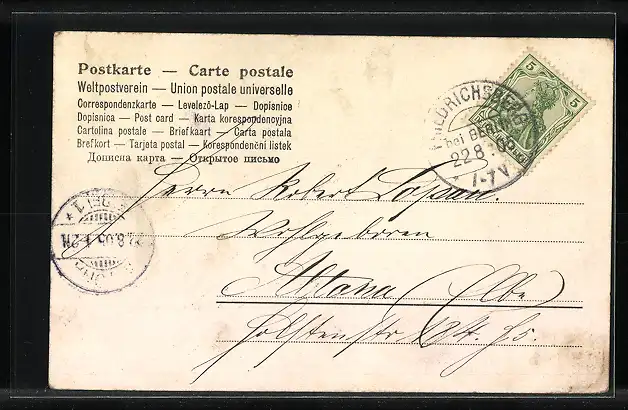 Postkarte — Carte postale
Weltpostverein — Union postale universelle
Correspondenzkarte — Levelező-Lap — Dopisnice
Dopisnica — Post card — Karta korespondencyjna
Cartolina postale — Briefkaart — Carta postala
Brefkort — Tarjeta postal — Korespondenčni listek
Дописна карта — Открытое письмо
5 5
FRIEDRICHSBERG
bei BERLIN
22.8.05
7-8 V
Herrn Robert
Wohlgeboren
Altona (Elbe)
Holstenstr.